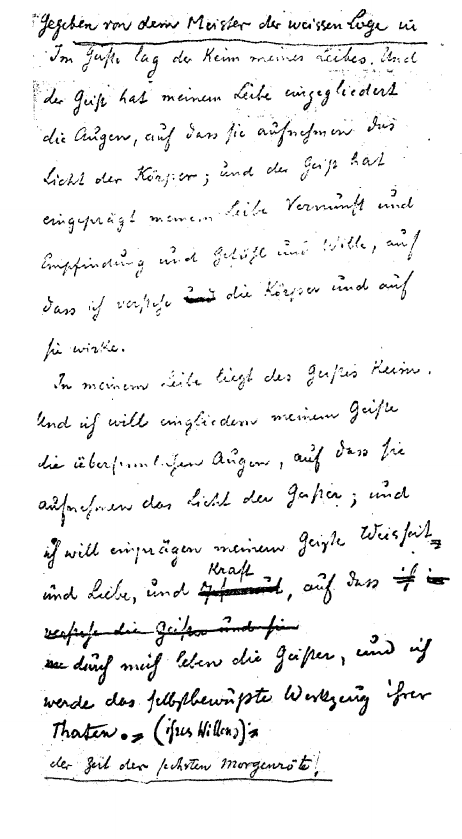 Gegeben von dem Meister der weissen Loge in
Im Geiste lag der Keim meines Leibes. Und
der Geist hat meinem Leibe eingegliedert
die Augen, auf dass sie aufnehmen das
Licht der Körper; und der Geist hat
eingeprägt meinem Leibe Vernunft und
Empfindung und Gefühl und Wille, auf
dass ich verstehe und die Körper und auf
sie wirke.
In meinem Leibe liegt des Geistes Keim.
Und ich will eingliedern meinem Geiste
die übersinnlichen Augen, auf dass sie
aufnehmen das Licht der Geister; und
ich will einprägen meinem Geiste Weisheit
Kraft
und Liebe, und , auf dass ich
verstehe die Geister und sie
durch mich leben die Geister, und ich
werde das selbstbewußte Werkzeug ihrer
Thaten. (ihres Willens)
der Zeit der sechsten Morgenröte!